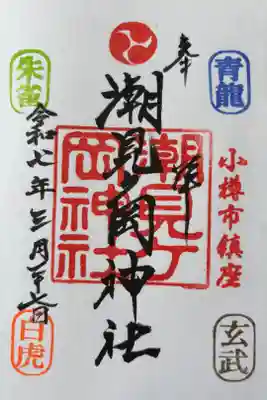 青龍
小樽市鎮座
玄武
奉拝
潮見ヶ岡神社
潮見ヶ
岡神社
朱雀
令和七年三月
白虎